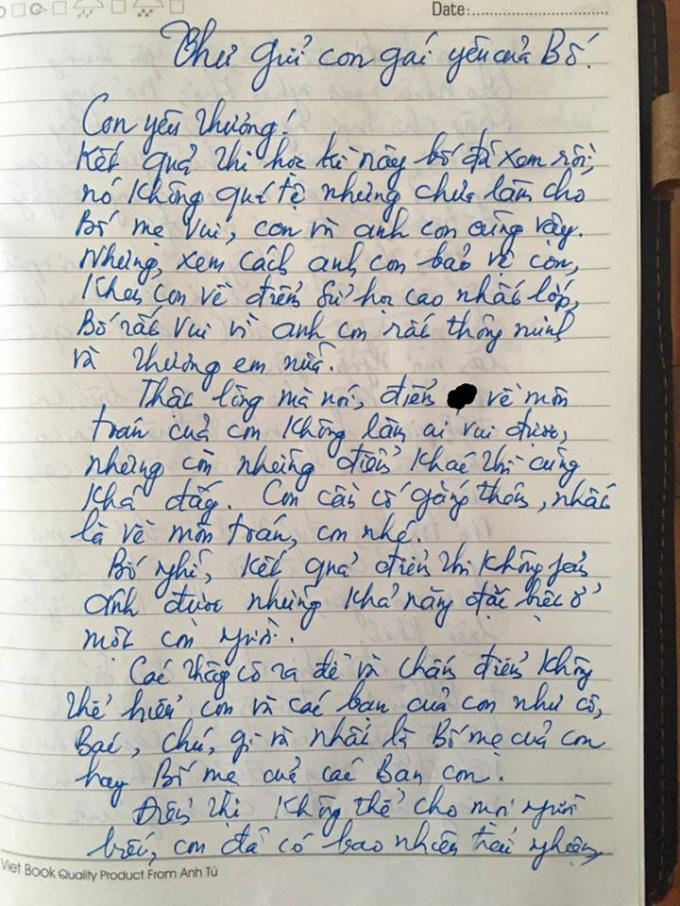 Date:
Thư gửi con gái yêu của Bố.
Con yêu thương!
Kết quả thi học kì này bố đã xem rồi,
nó không quá tệ nhưng chưa làm cho
Bố mẹ vui, con và anh con cũng vậy.
Nhưng, xem cách anh con bảo vệ con,
Khen con về điểm sử học cao nhất lớp,
Bố rất vui vì anh con rất thông minh
và thương em nữa.
Thật lòng mà nói, điểm về môn
toán của con không làm ai vui được,
nhưng còn những điểm khác thì cũng
khá đấy. Con cần cố gắng thêm, nhất
là về môn toán, con nhé.
Bố nghĩ, kết quả điểm thi không phản
ánh được những khả năng đặc biệt ở
một con người.
Các thầy cô ra đề và chấm điểm không
thể hiểu con và các bạn của con như cô,
Bác, chú, gì và nhất là Bố mẹ của con
hay Bố mẹ của các Bạn con.
Điểm thi không thể cho mọi người
biết, con đã có bao nhiêu trải nghiệm,
Viet Book Quality Product From Anh Tú